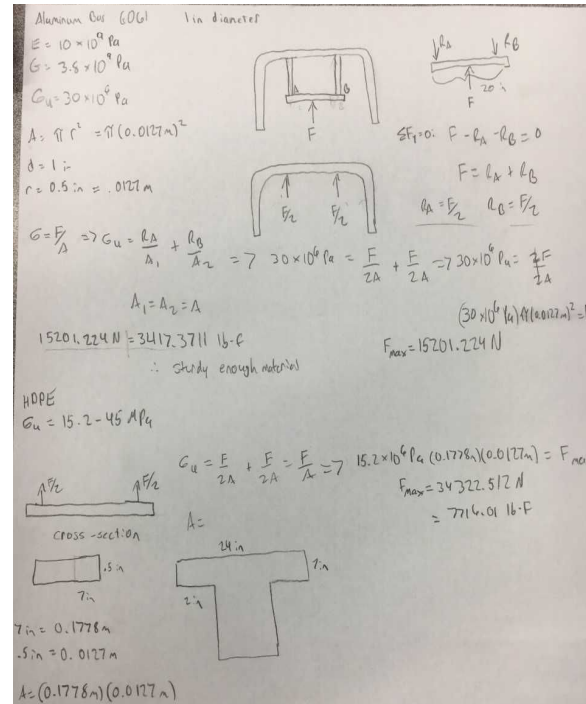 Aluminum Bar 6061 1 in diameter
E = 10 × 10⁹ Pa
G = 3.8 × 10⁹ Pa
σu = 30 × 10⁶ Pa
A = π r² = π(0.0127m)²
d = 1 in
r = 0.5 in = .0127 m
A B
F
RA RB
F
20 in
ΣFy=0: F - RA - RB = 0
F = RA + RB
RA = F/2 RB = F/2
F/2 F/2
σ = F/A => σu = RA/A1 + RB/A2 => 30×10⁶ Pa = F/2A + F/2A => 30×10⁶ Pa = 2F/2A
A1 = A2 = A
(30×10⁶ Pa) π(0.0127m)² =
15201.224 N = 3417.3711 lb-f
Fmax = 15201.224 N
∴ sturdy enough material
HDPE
σu = 15.2 - 45 MPa
σu = F/2A + F/2A = F/A => 15.2×10⁶ Pa (0.1778m)(0.0127m) = Fmax
Fmax = 34322.512 N
= 7716.01 lb-F
F/2 F/2
cross-section
A =
.5 in
7in
24 in
7in
2 in
7 in = 0.1778 m
.5 in = 0.0127 m
A = (0.1778m)(0.0127m)